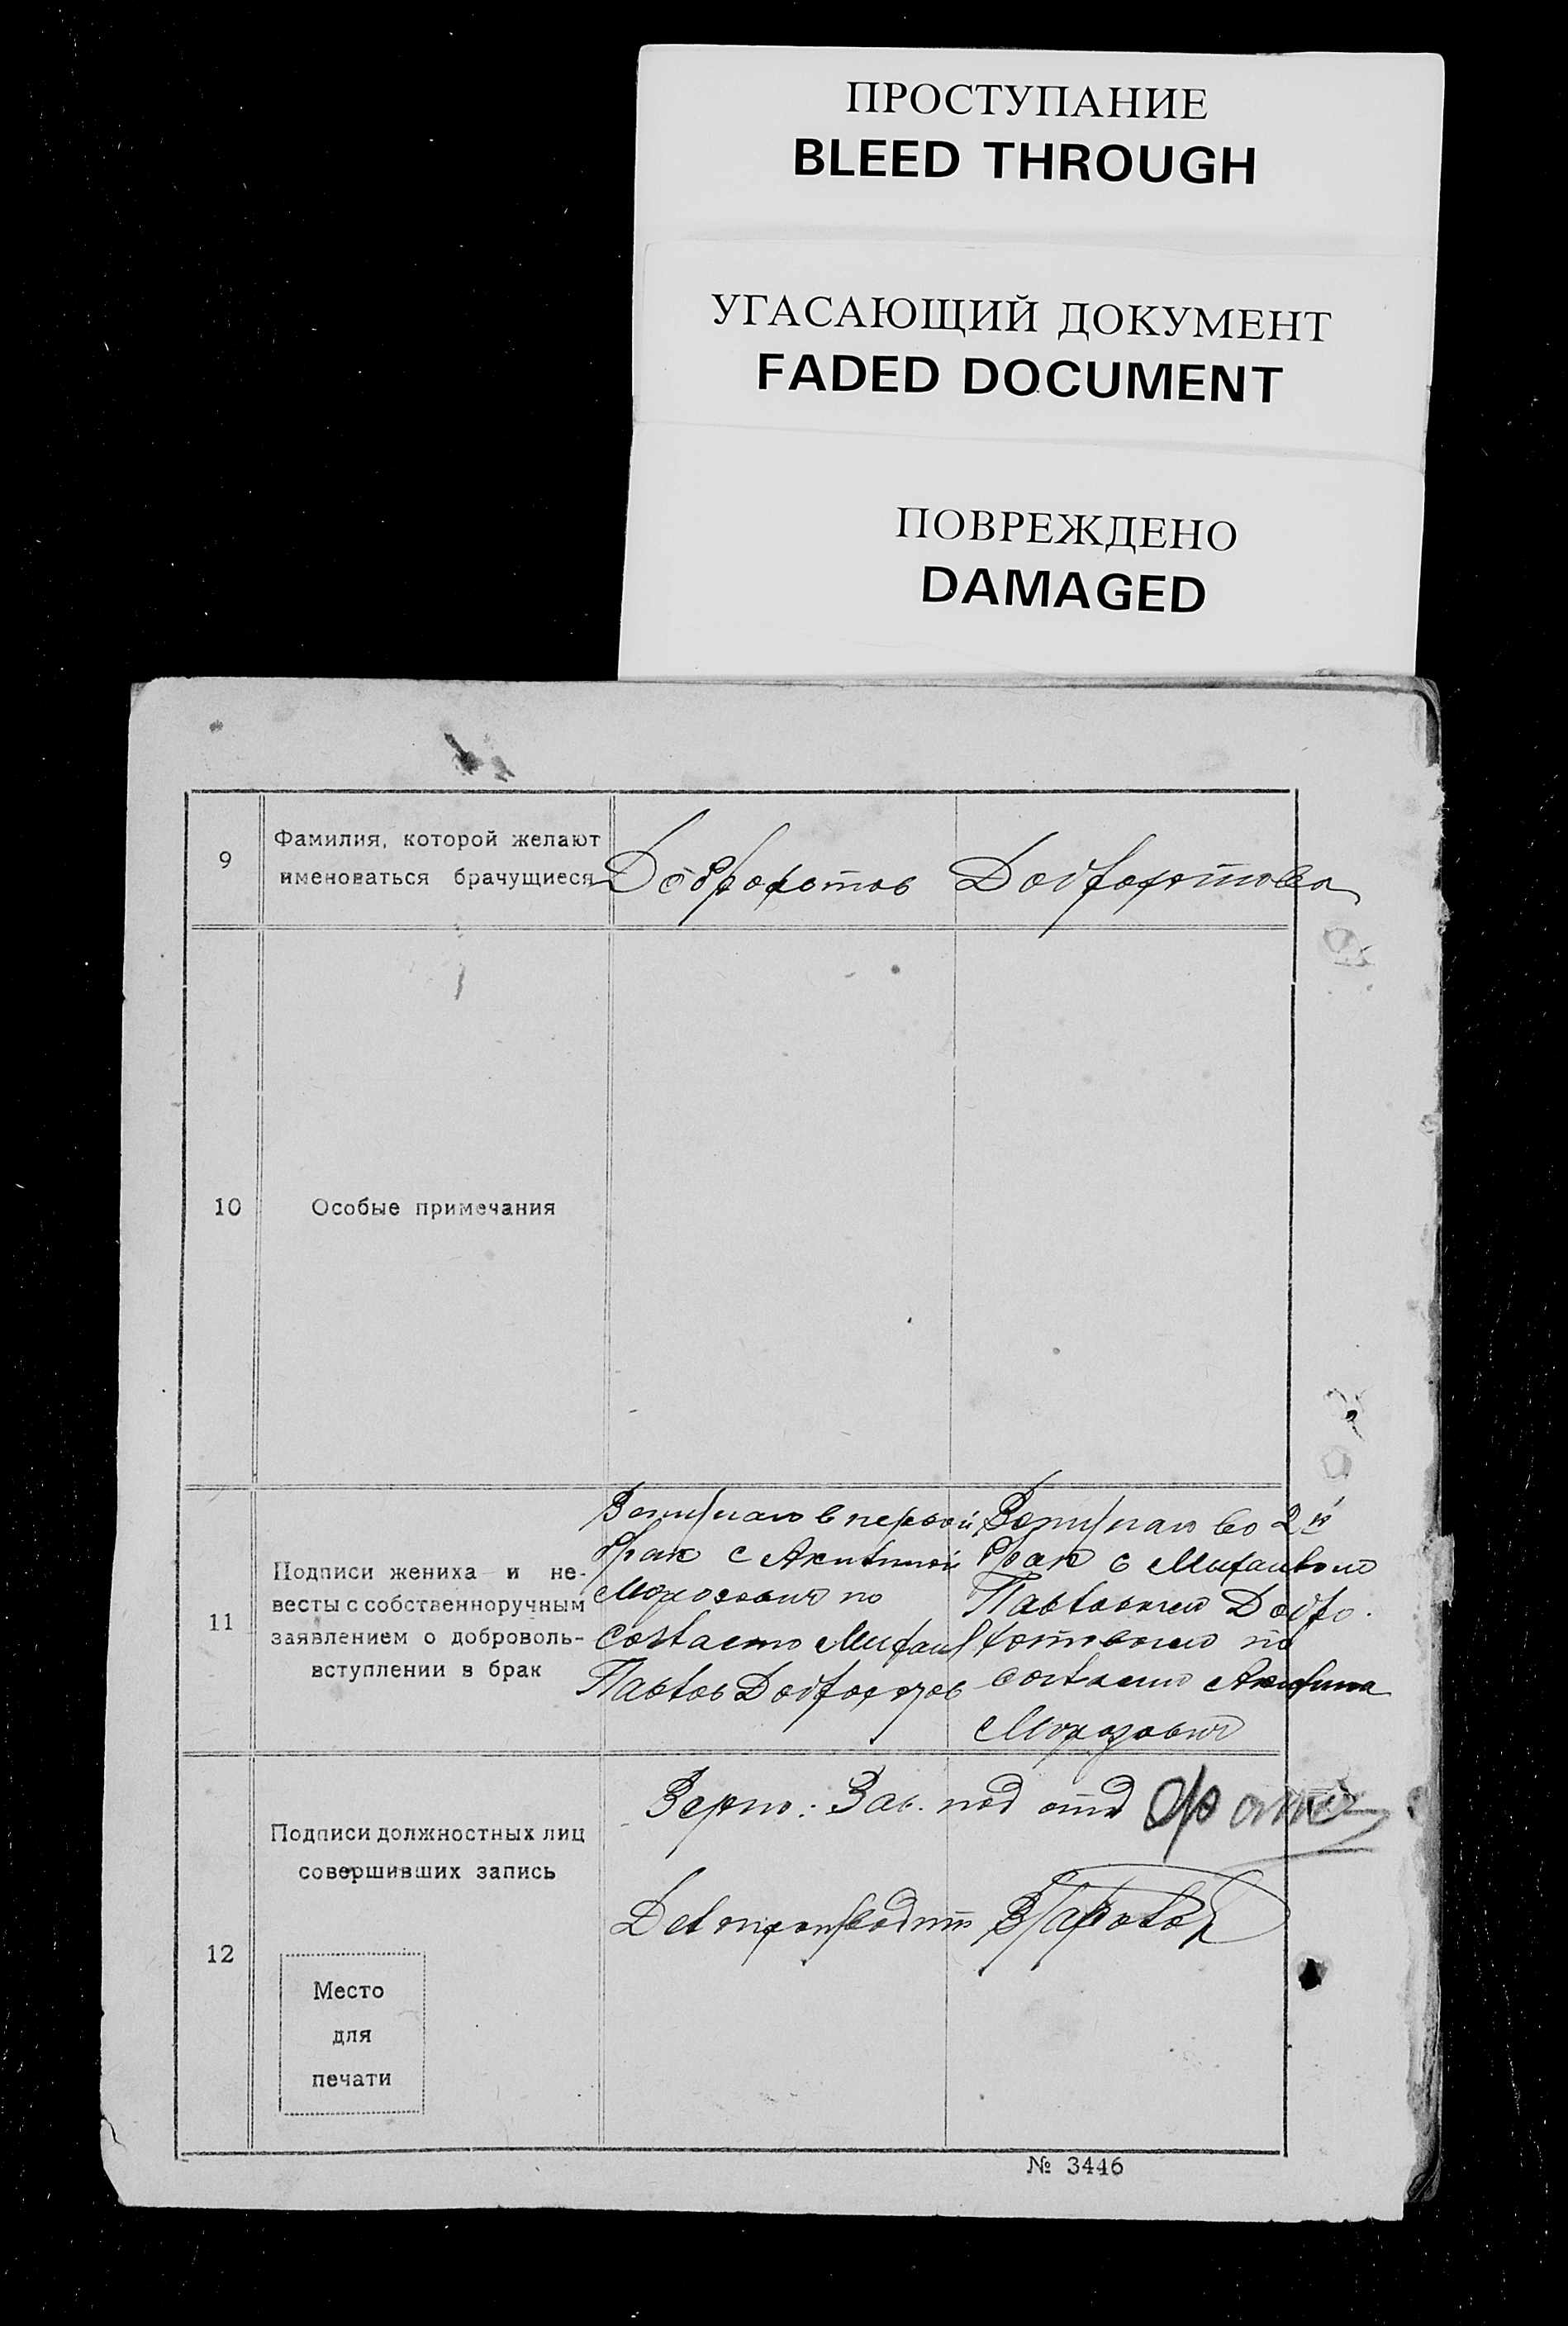 ПРОСТУПАНИЕ
BLEED THROUGH
УГАСАЮЩИЙ ДОКУМЕНТ
FADED DOCUMENT
ПОВРЕЖДЕНО
DAMAGED
9
Фамилия, которой желают
именоваться брачущиеся
Доброхотов
Доброхотова
10
Особые примечания
11
Подписи жениха и не-
весты с собственноручным
заявлением о доброволь-
вступлении в брак
Вступаю в первый
брак с
по
согласию Михаил
Павлов Доброхотов
Вступаю во 2 й
брак с Михаилом
Павловичем Добро-
хотовым по
согласию
12
Подписи должностных лиц
совершивших запись
Место
для
печати
Верно: Зав. под отд
Делопроизводит
№ 3446